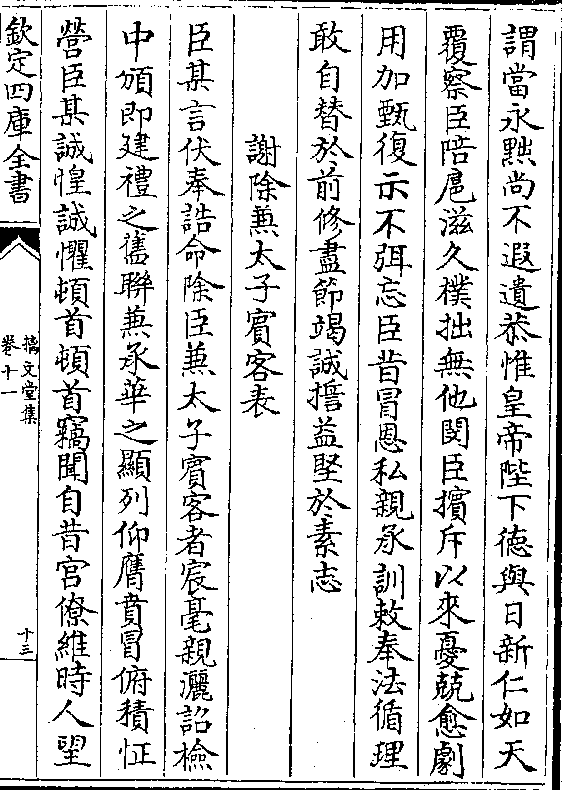 謂當永黜尚不遐遺恭惟皇帝陛下德與日新仁如天
覆察臣陪扈滋久樸拙無他閔臣擯斥以來憂兢愈劇
用加甄復示不弭忘臣昔冒恩私親承訓敕奉法循理
敢自替於前修盡節竭誠擔益堅於素志
謝除兼太子賓客表
臣某言伏奉誥命除臣兼太子賓客者宸毫親灑詔檢
中頒即建禮之舊聯兼承華之顯列仰膺賁冒俯積怔
營臣某誠惶誠懼頓首頓首竊聞自昔宮僚維時人望
欽定四庫全書
摛文堂集
卷十一
十三